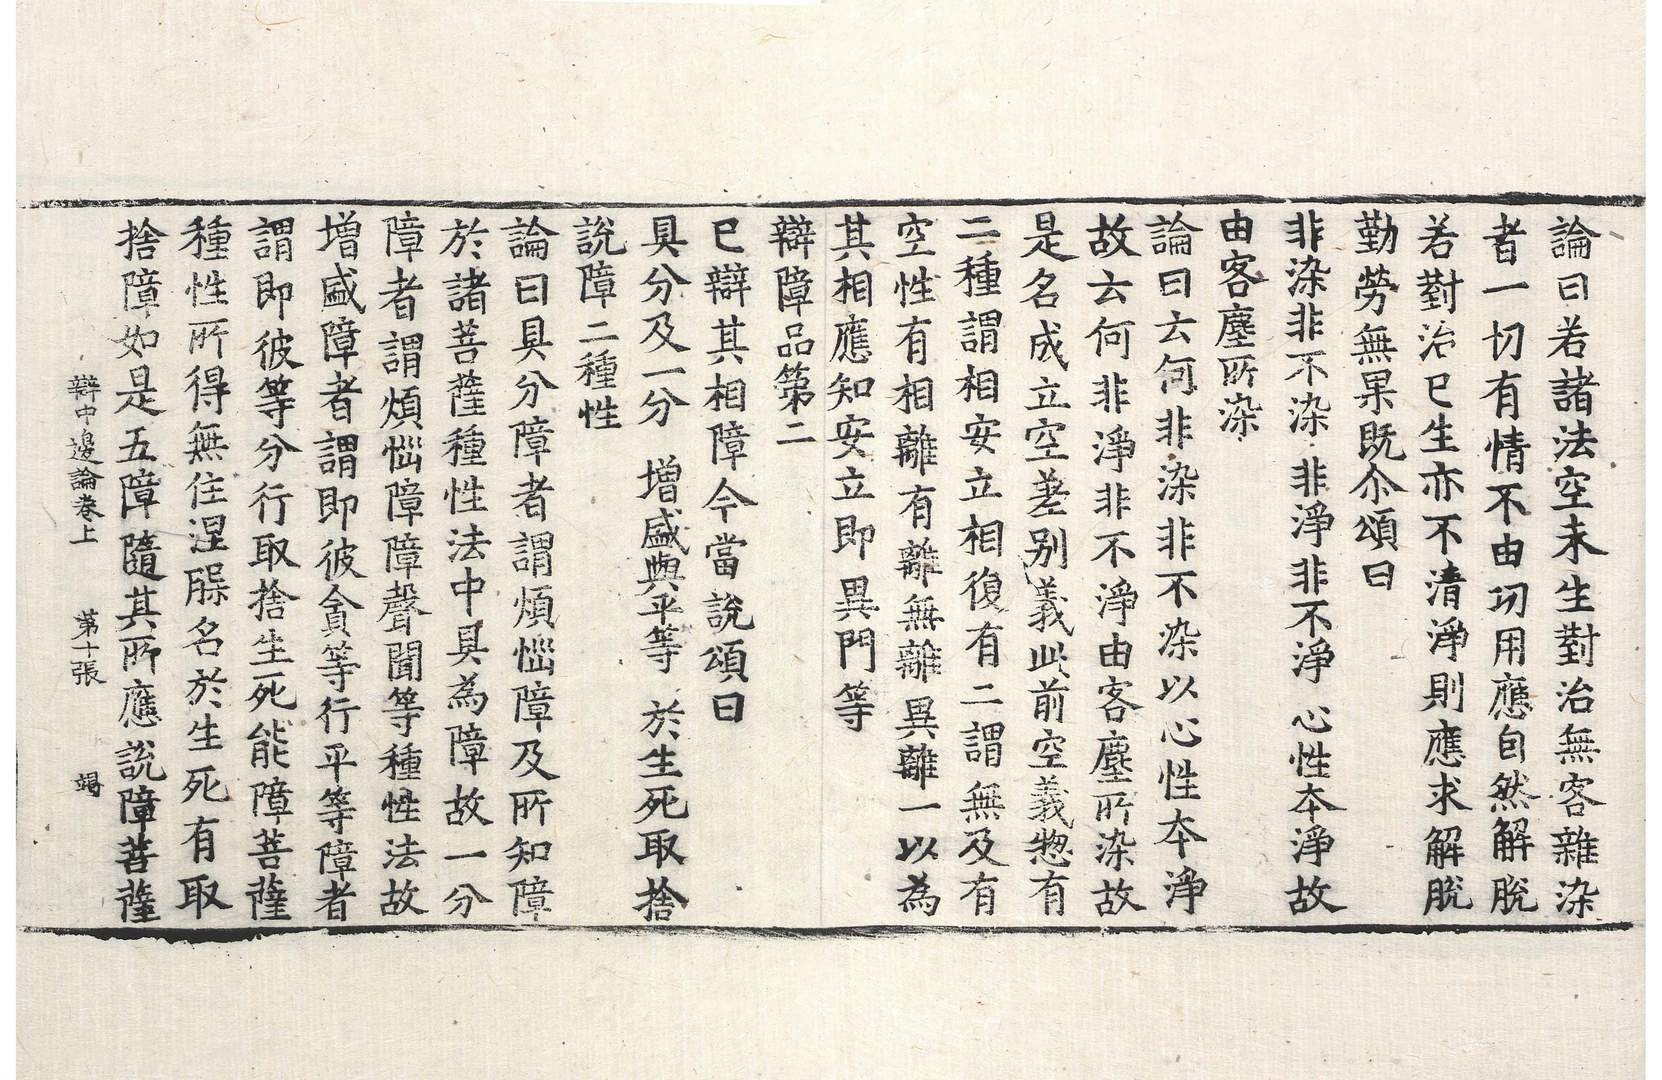 論曰若諸法空未生對治無客雜染
者一切有情不由功用應自然解脫
若對治已生亦不清淨則應求解脫
勤勞無果既尒頌曰
非染非不染 非淨非不淨 心性本淨故
由客塵所染
論曰云何非染非不染以心性本淨
故云何非淨非不淨由客塵所染故
是名成立空差別義此前空義惣有
二種謂相安立相復有二謂無及有
空性有相離有離無離異離一以為
其相應知安立即異門等
辯障品第二
已辯其相障今當說頌曰
具分及一分 增盛與平等 於生死取捨
說障二種性
論曰具分障者謂煩惱障及所知障
於諸菩薩種性法中具為障故一分
障者謂煩惱障障聲聞等種性法故
增盛障者謂即彼貪等行平等障者
謂即彼等分行取捨生死能障菩薩
種性所得無住涅槃名於生死有取
捨障如是五障隨其所應說障菩薩
辯中邊論卷上 第十張 竭